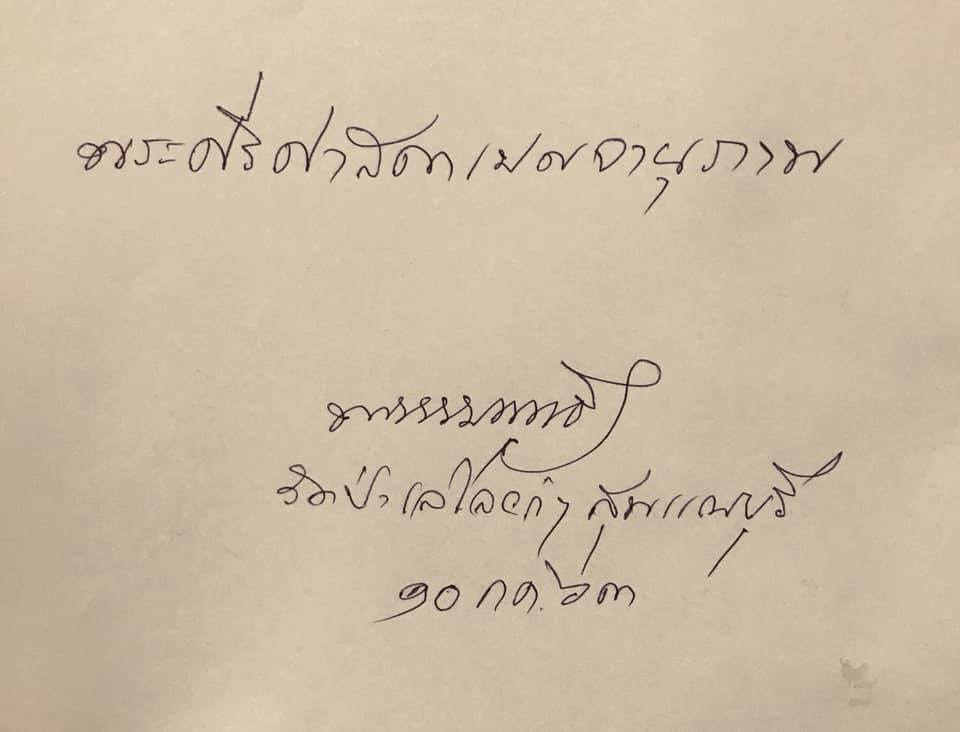 พระศรีศาสดาเดชานุภาพ
พระธรรมพุทธิ
วัดป่าเลไลยก์ฯ สุพรรณบุรี
๑๐ กค. ๖๓